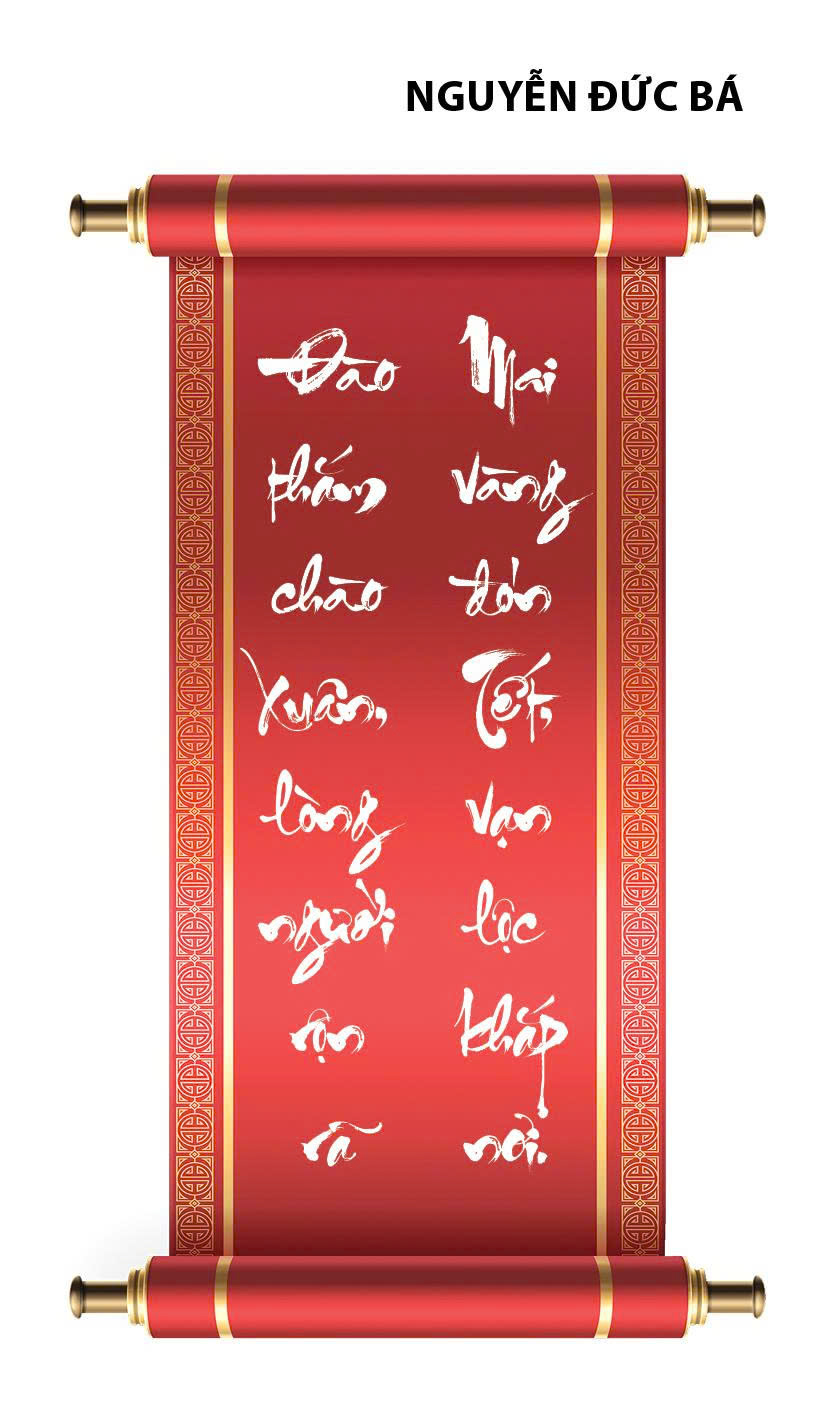 NGUYỄN ĐỨC BÁ
Đào
thắm
chào
Xuân,
lòng
người
rộn
rã
Mai
vàng
đón
Tết,
vạn
lộc
khắp
nơi.